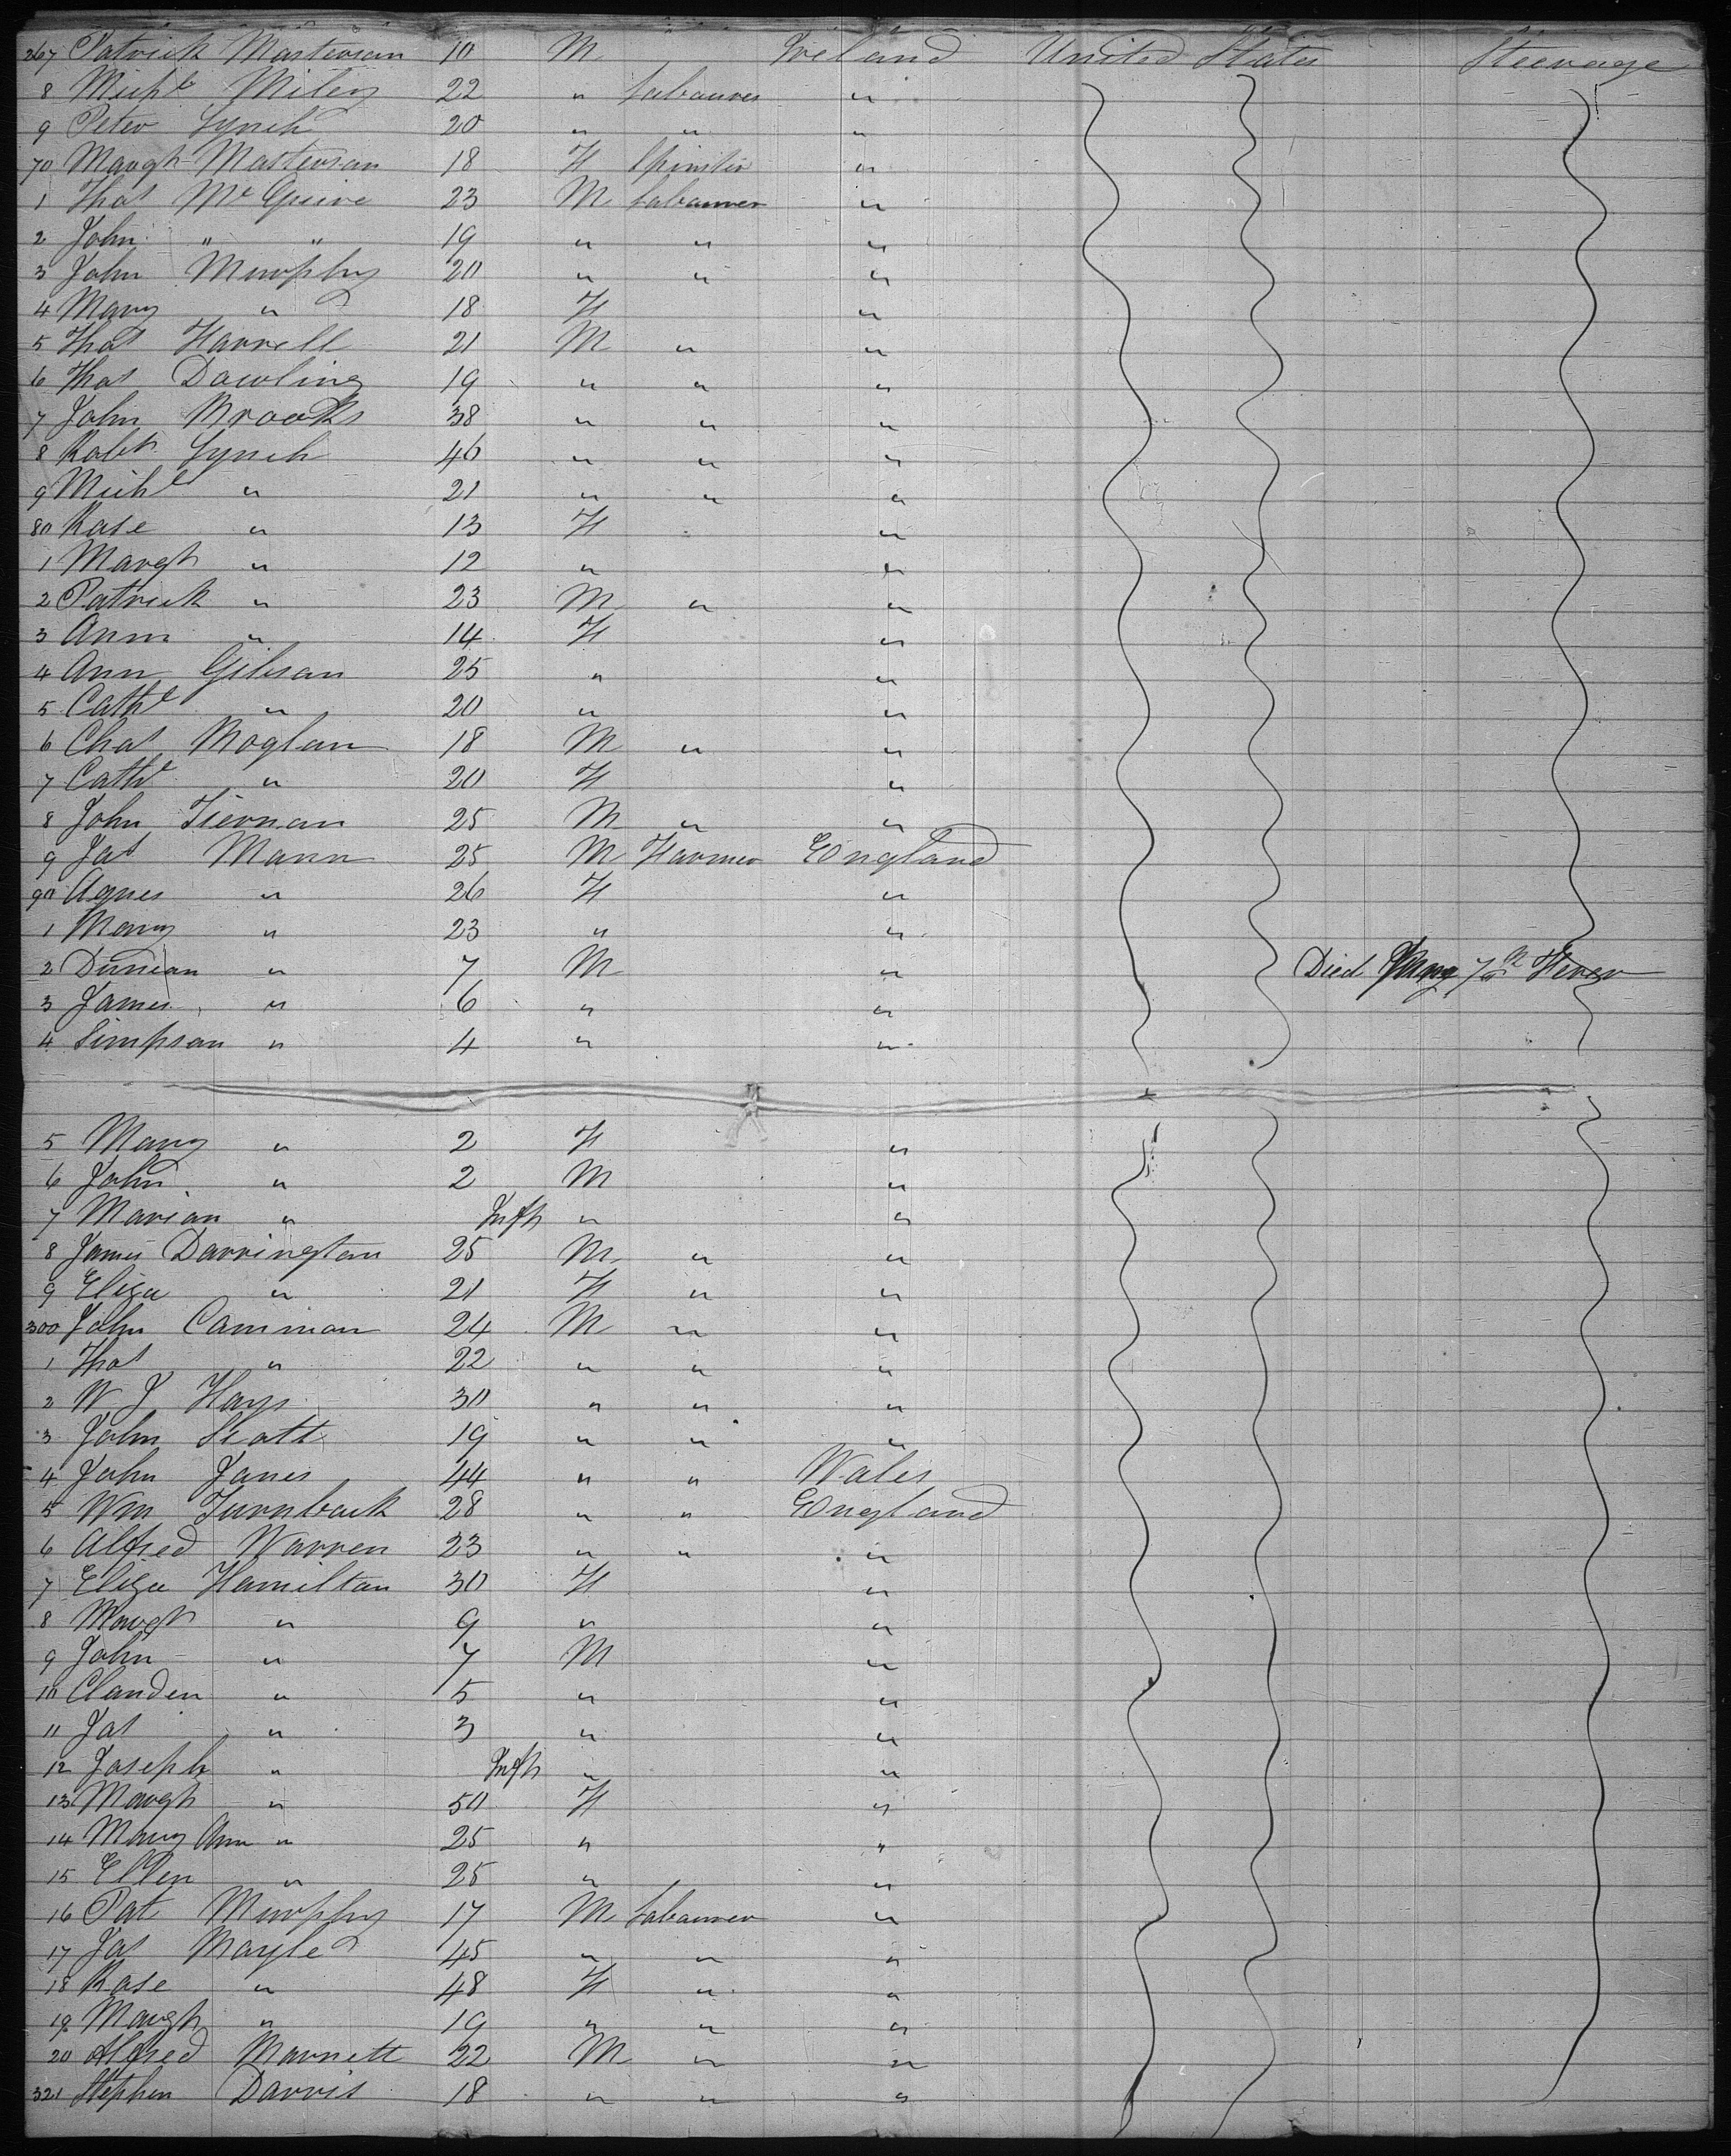 267 Patrick Masterson 10 M Ireland United States Steerage
8 Michl Miley 22 " Labourer "
9 Peter Lynch 20 " " "
70 Margt Masterson 18 F Spinster "
1 Thos McGuire 23 M Labourer "
2 John " " 19 " " "
3 John Murphy 20 " " "
4 Mary " 18 F "
5 Thos Farrell 21 M " "
6 Thos Dowling 19 " " "
7 John Brooks 38 " " "
8 Robt Lynch 40 " " "
9 Michl " 21 " " "
80 Rose " 13 F "
1 Margt " 12 " "
2 Patrick " 23 M " "
3 Ann " 14 F "
4 Ann Gibson 25 " "
5 Cathe " 20 " "
6 Chas Boylan 18 M " "
7 Cathe " 20 F "
8 John Tiernan 25 M " "
9 Jas Mann 25 M Farmer England
90 Agnes " 26 F "
1 Mary " 23 " "
2 Duncan " 7 M " Died 7th Fever
3 James " 6 " "
4 Simpson " 4 " "
5 Mary " 2 F "
6 John " 2 M "
7 Marian " Inft " "
8 James Darrington 25 M " "
9 Eliza " 21 F " "
300 John Camman 24 M " "
1 Thos " 22 " " "
2 W J Hays 30 " " "
3 John Scott 19 " " "
4 John Jones 44 " " Wales
5 Wm Turnback 28 " " England
6 Alfred Warren 23 " " "
7 Eliza Hamilton 30 F "
8 Margt " 9 " "
9 John " 7 M "
10 " 5 " "
11 Jas " 3 " "
12 Joseph " Inft " "
13 Margt " 50 F "
14 Mary Ann " 25 " "
15 Ellen " 25 " "
16 Pat Murphy 17 M Labourer "
17 Jas Boyle 45 " " "
18 Rose " 48 F " "
19 Margt " 19 " " "
20 Alfred Barnett 22 M " "
321 Stephen Darris 18 " " "